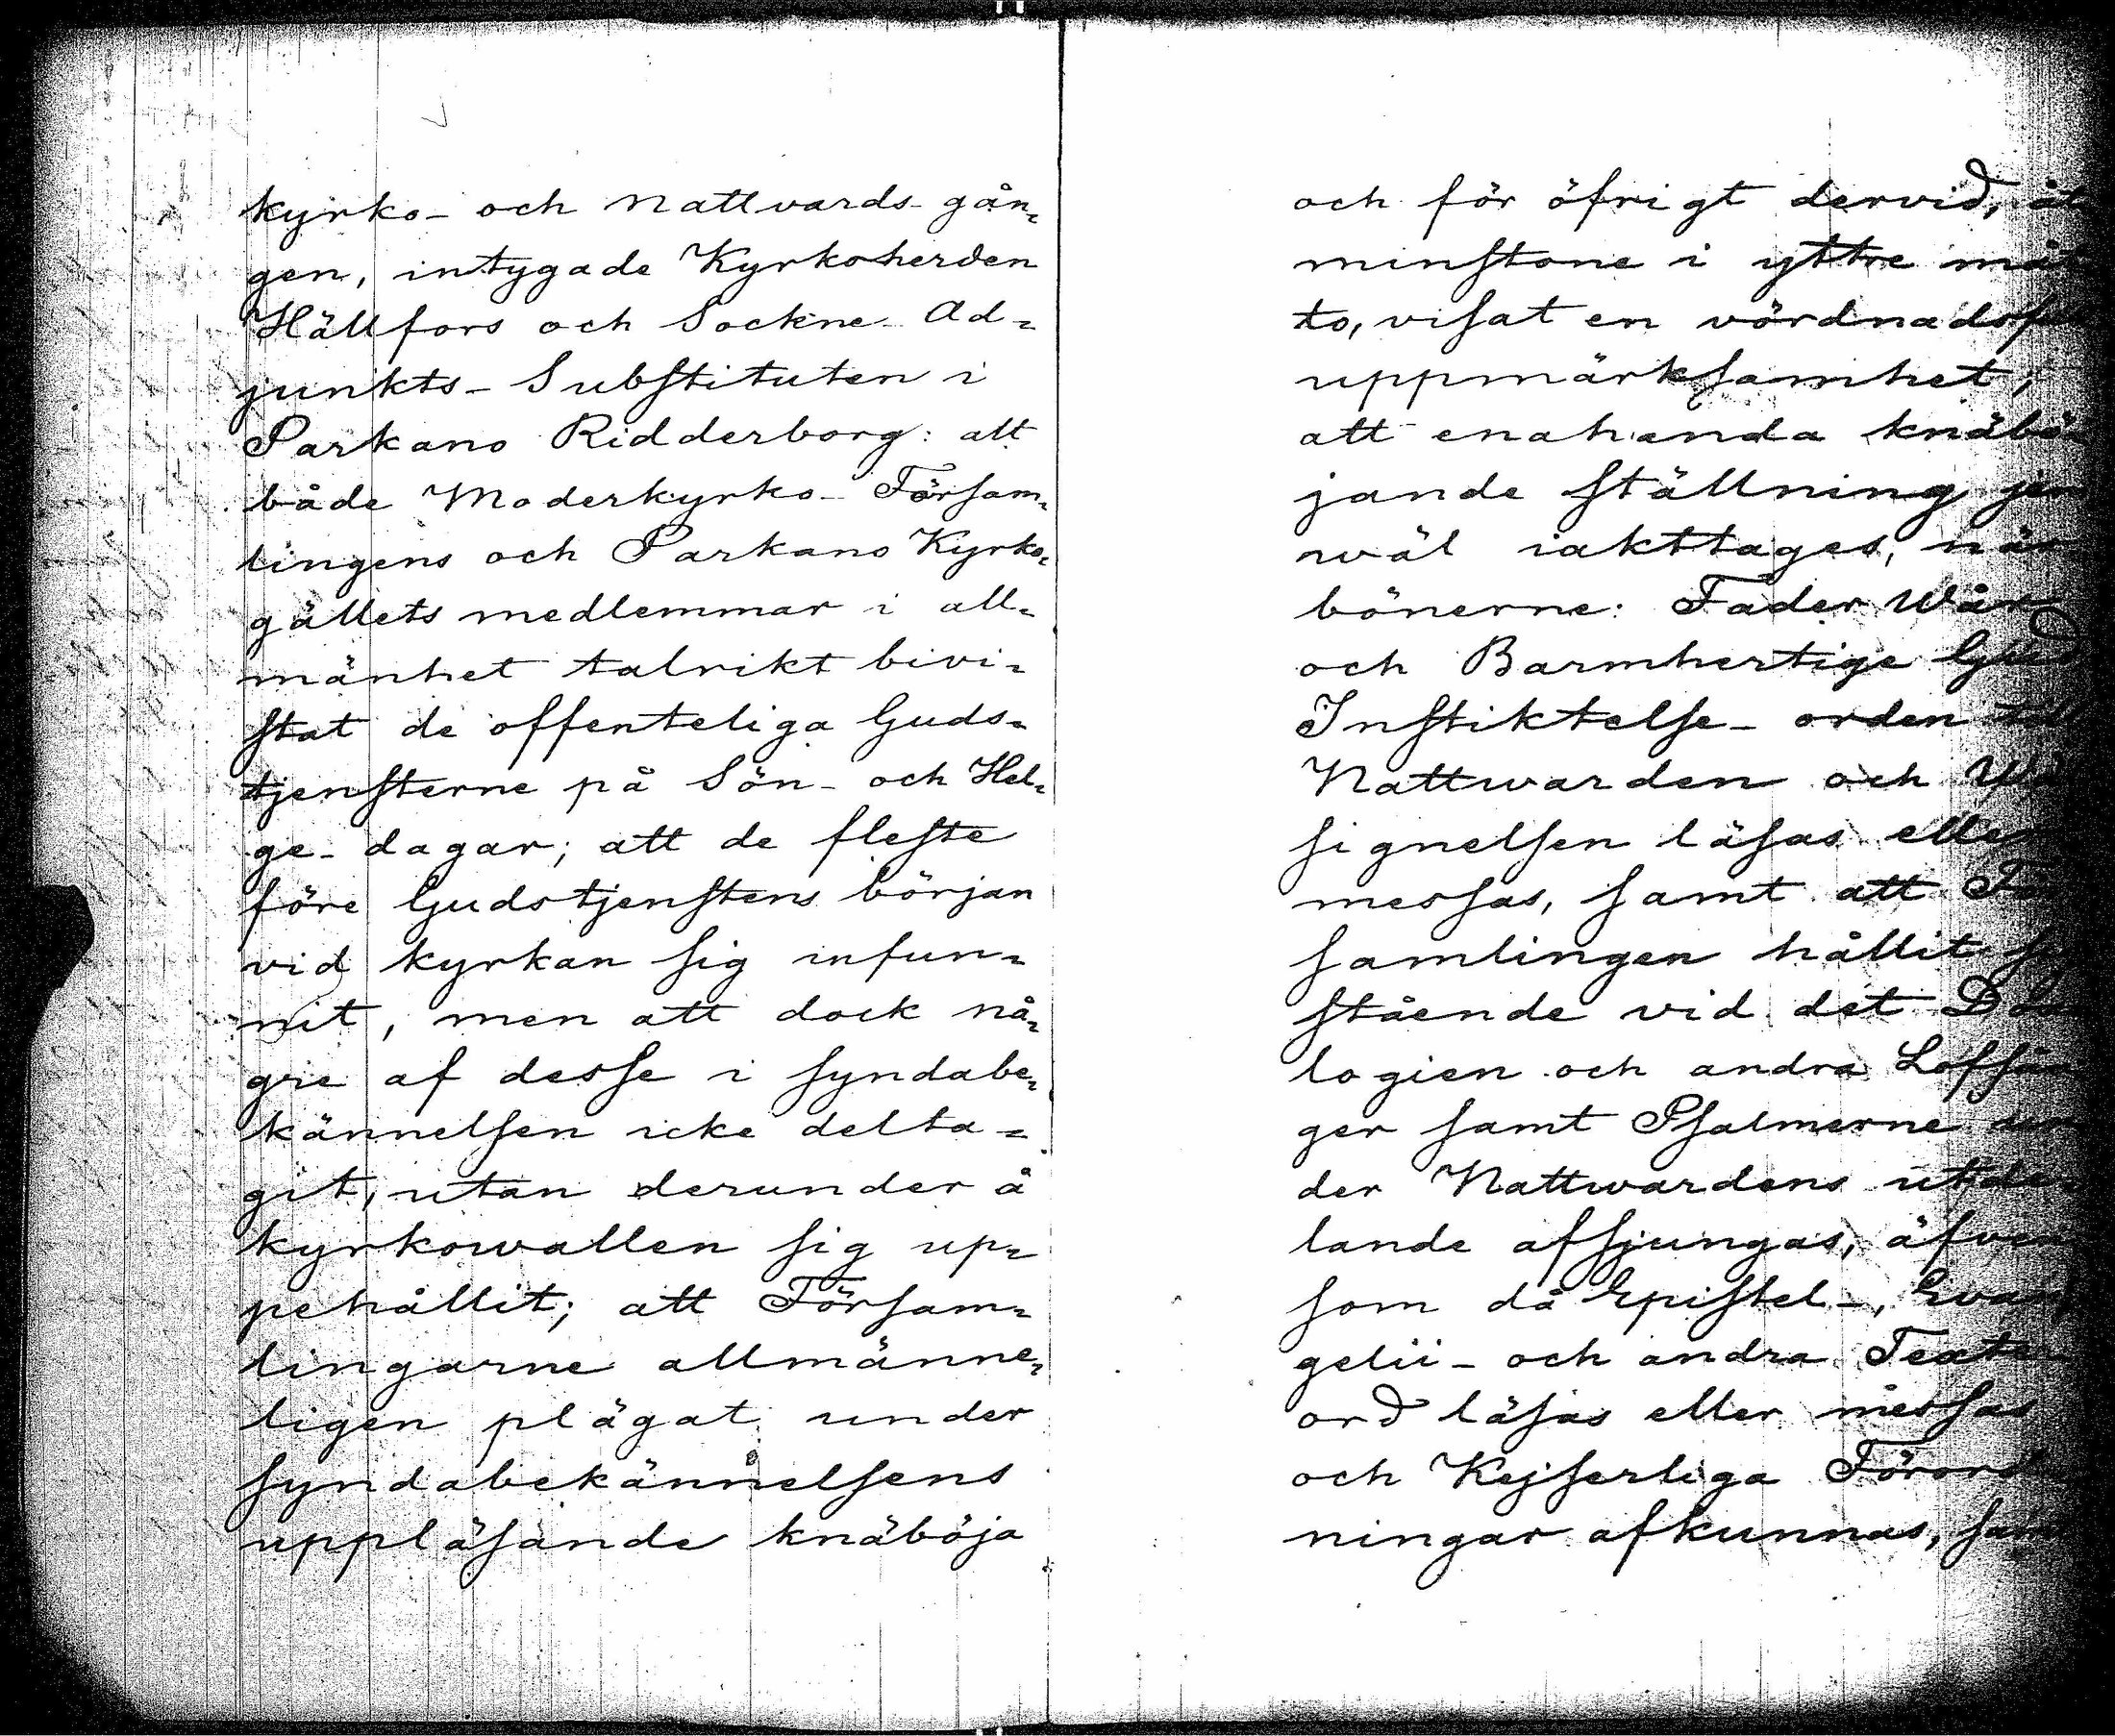 kyrko- och nattvards-gån=
gen, intygade Kyrkoherden
Hällfors och Sockne-Ad=
junkts-Substituten i
Parkano Ridderborg: att
både Moderkyrko-Försam=
lingens och Parkano Kyrko=
gällets medlemmar i all=
mänhet talrikt bivi=
stat de offenteliga Guds=
tjensterne på Sön- och Hel=
ge-dagar; att de fleste
före Gudstjenstens början
vid kyrkan sig infun=
nit, men att dock nå=
gre af desse i syndabe=
kännelsen icke delta=
git, utan derunder å
kyrkowallen sig up=
pehållit; att Försam=
lingarne allmänne=
ligen plägat under
syndabekännelsens
uppläsande knäböja
och för öfrigt dervid, åt
minstone i yttre måt
to, visat en vördnadsful
uppmärksamhet;
att enahanda knäbö=
jande ställning jem
wäl iakttages, när
bönerne: Fader Wår
och Barmhertige Gud
Instiktelse-orden till
Nattwarden och Wäl
signelsen läsas eller
messas, samt att För
samlingen hållit
stående vid det
logien och andra Loffsån
ger samt Psalmerne
der Nattwardens utde=
lande afsjungas, äfven
som då Epistel-, Evan
gelii- och andra Texter
ord läsas eller messas
och Kejserliga Förord
ningar afkunnas, samt